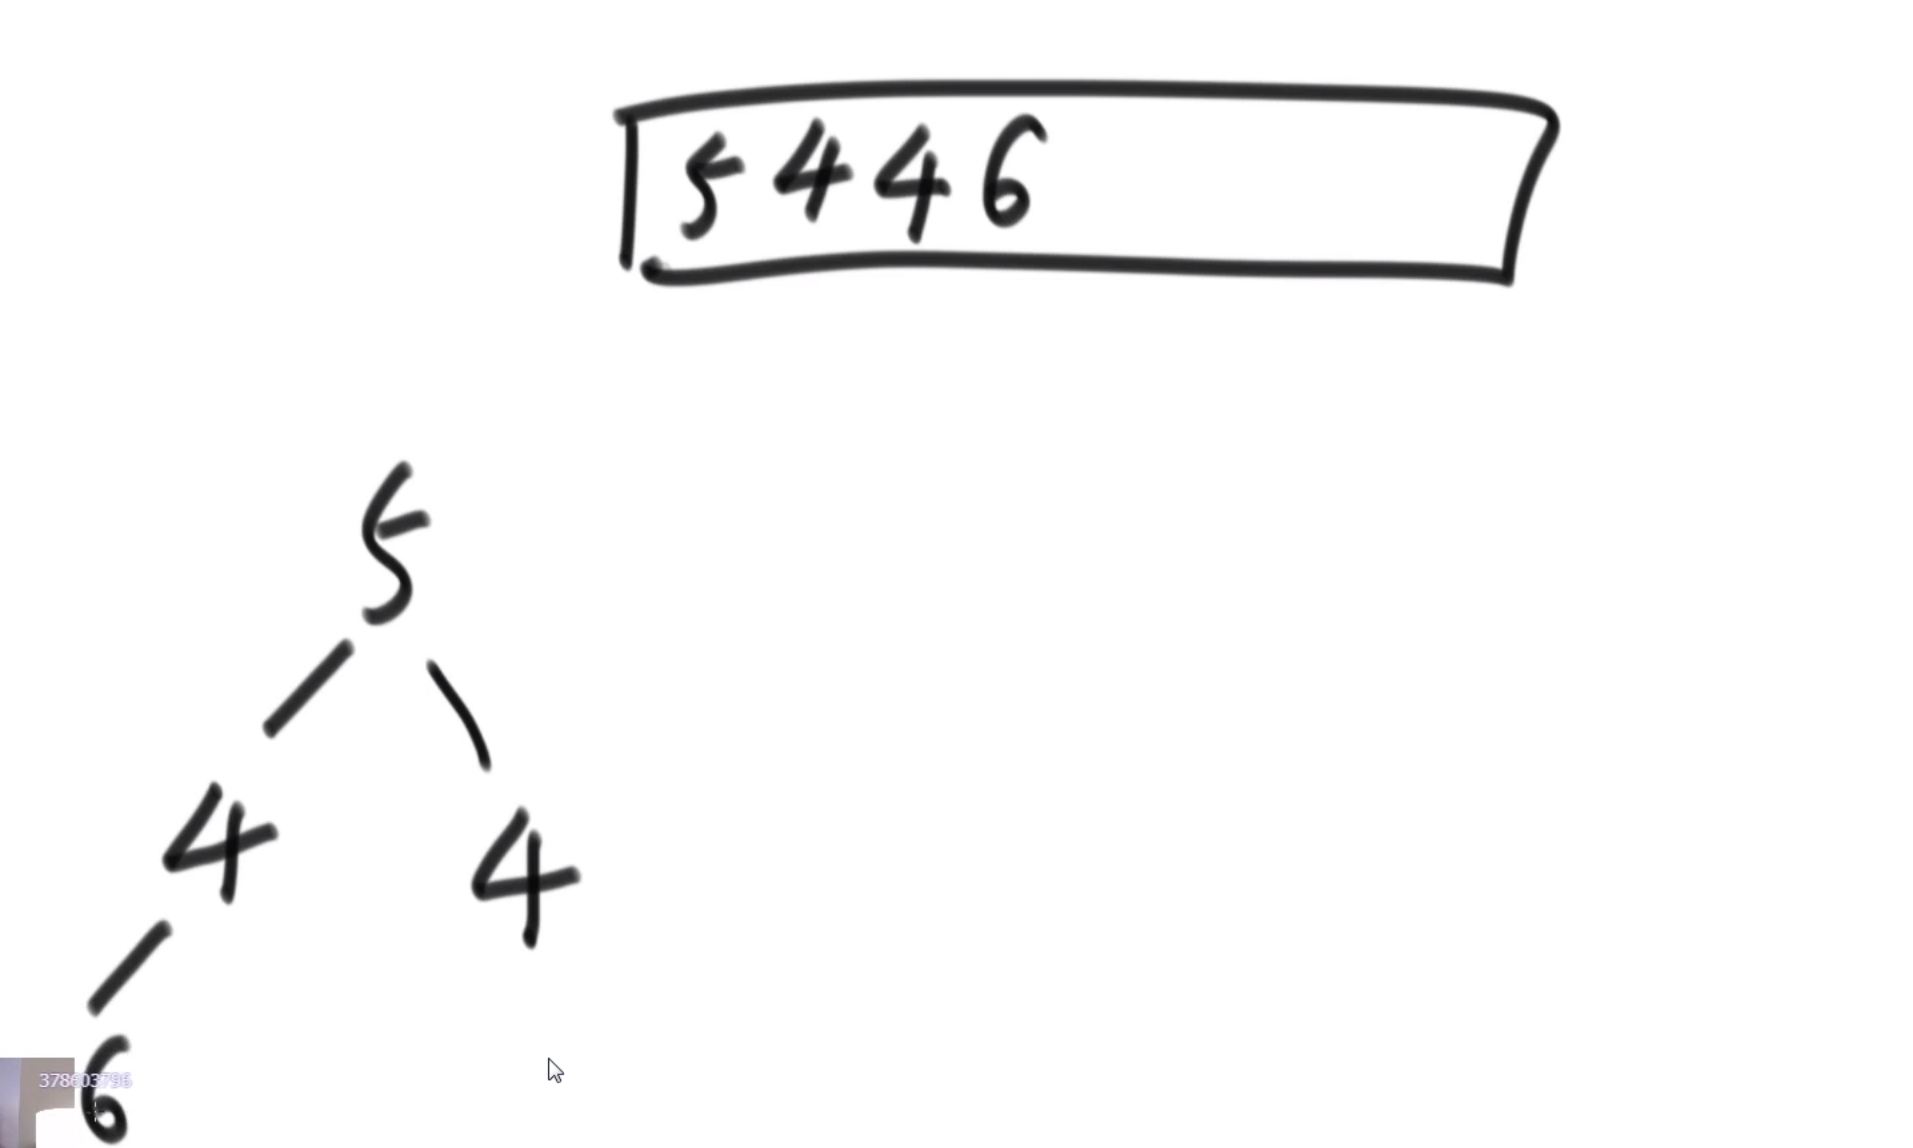 5 4 4 6
5
4 4
6
378603796